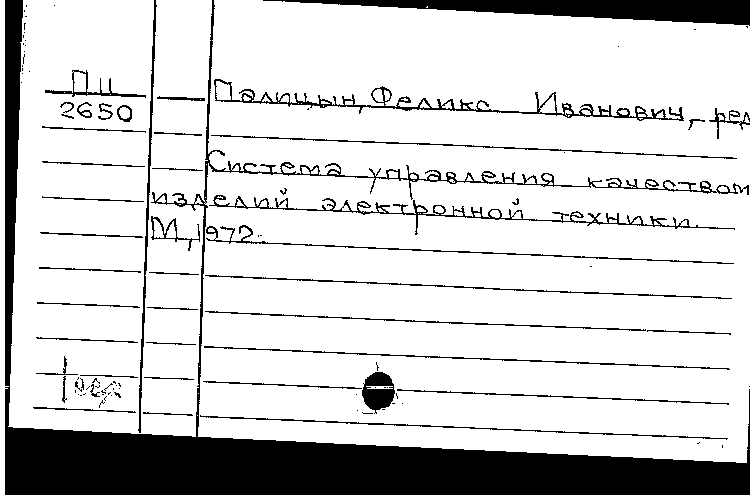 П II
2650
Палицын, Феликс Иванович, ред
Система управления качеством
изделий электронной техники.
М, 1972.